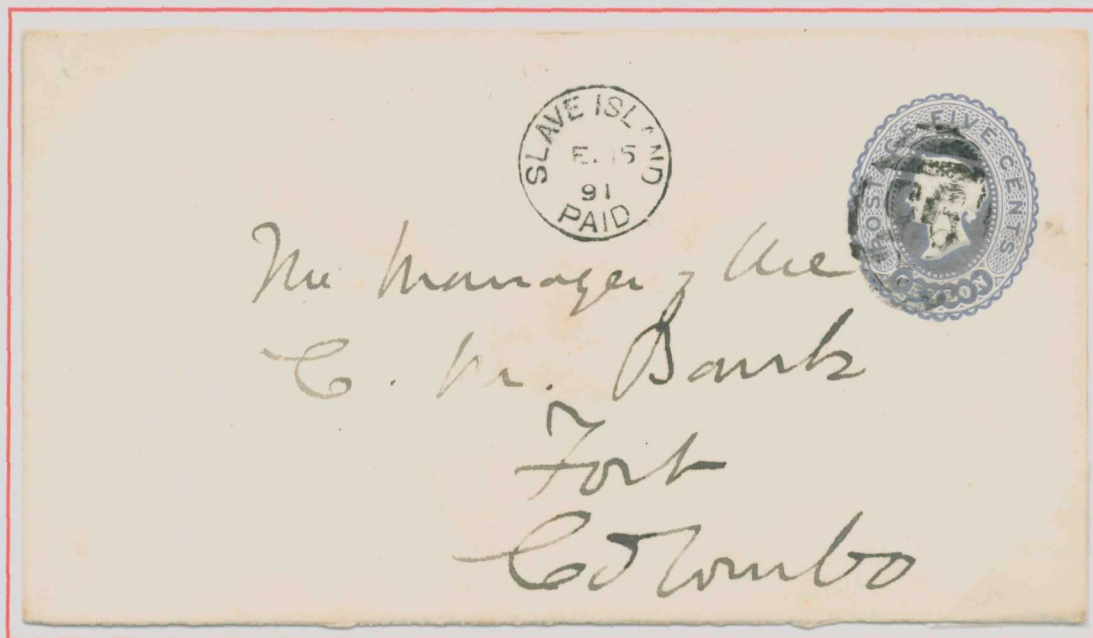 SLAVE ISLAND
E. 15
91
PAID
POSTAGE FIVE CENTS
CEYLON
The Manager, the
C. M. Bank
Fort
Colombo